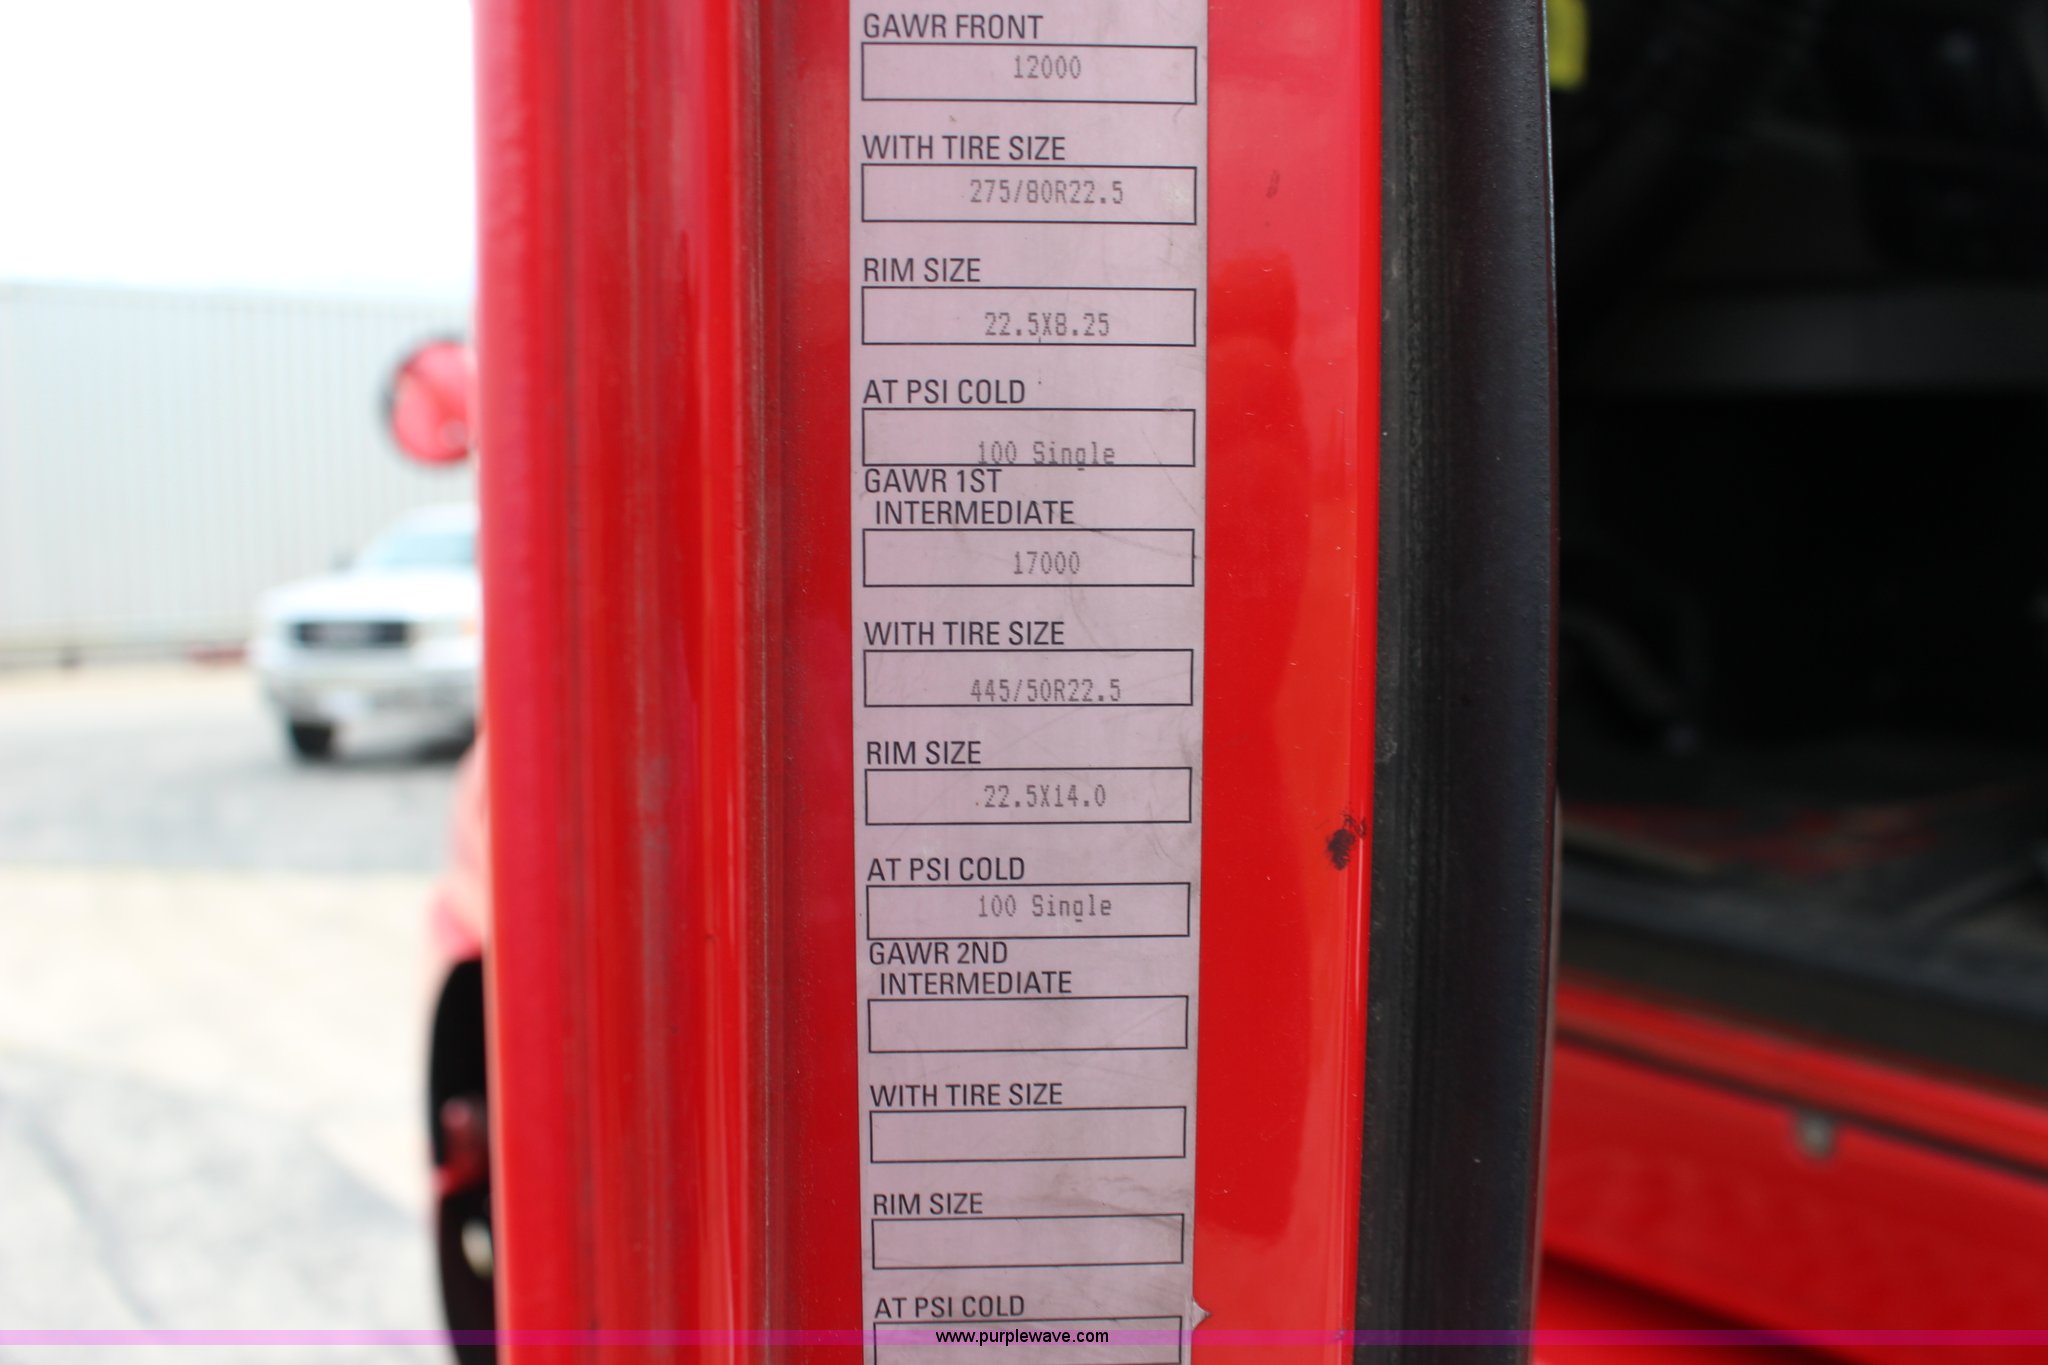 GAWR FRONT
12000
WITH TIRE SIZE
275/80R22.5
RIM SIZE
22.5X8.25
AT PSI COLD
100 Single
GAWR 1ST
INTERMEDIATE
17000
WITH TIRE SIZE
445/50R22.5
RIM SIZE
22.5X14.0
AT PSI COLD
100 Single
GAWR 2ND
INTERMEDIATE
WITH TIRE SIZE
RIM SIZE
AT PSI COLD
www.purplewave.com